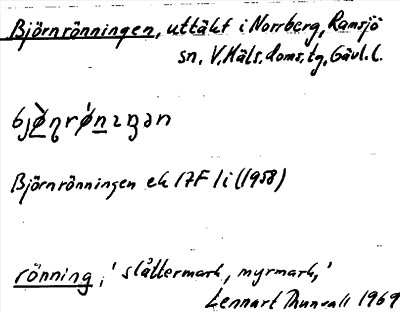 Björnrönningen, uttäkt i Norrberg, Ramsjö
sn, V. Häls. doms. tg, Gävl. l.
bjø̀ɳrǿnɪŋən
Björnrönningen ek 17F 1i (1958)
rönning, 'slåttermark, myrmark,'
Lennart 1969